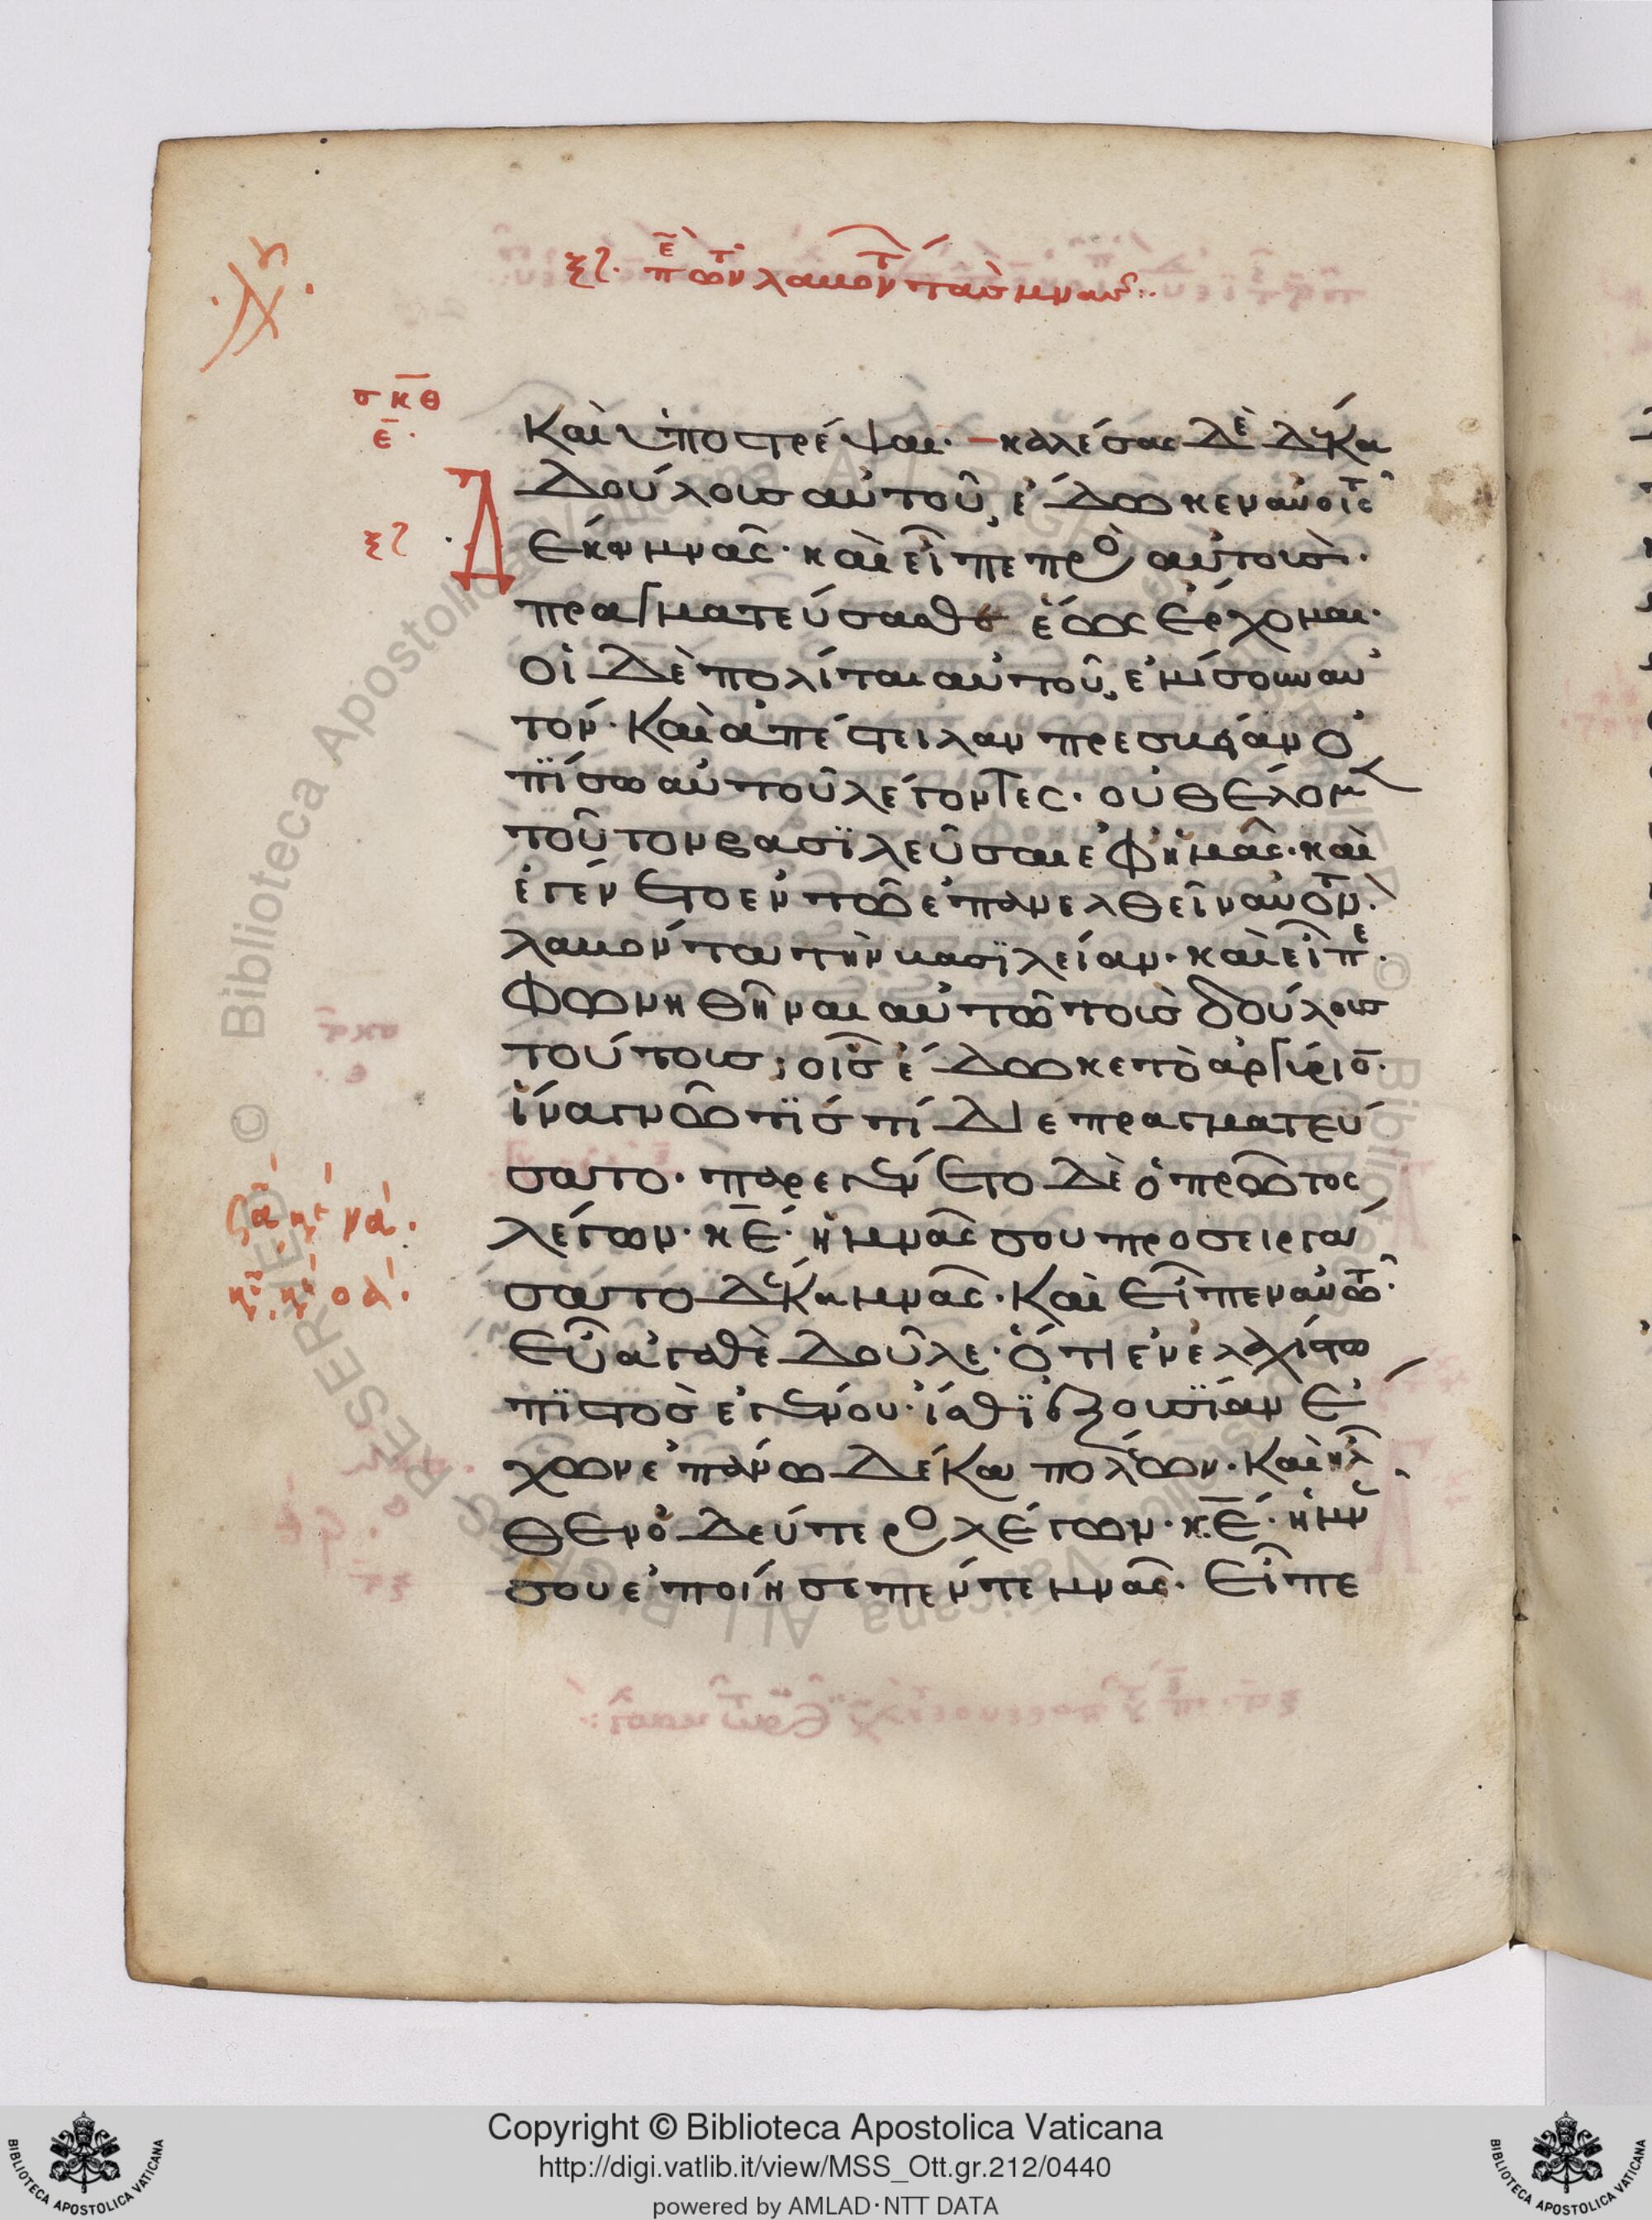 ξζ. πε τῶν λαβόντ τὰς μνας:.
σκθ
ε.
Καὶ ὑποστρέψαι. καλέσας δὲ δέκα
δούλους αὐτοῦ, ἔδωκεν αὐτοῖς
ξζ
δέκα μνᾶς. καὶ εἶπε πρὸς αὐτούς.
πραγματεύσασθε ἕως ἔρχομαι.
οἱ δὲ πολίται αὐτοῦ, ἐμίσουν αὐ
τόν. Καὶ ἀπέστειλαν πρεσβείαν ὀ
πίσω αὐτοῦ λέγοντες. οὐ θέλομεν
τοῦτον βασϊλεῦσαι ἐφ' ἡμᾶς. καὶ
ἐγένετο ἐν τῶ ἐπανελθεῖν αὐτὸν.
λαβόντα τὴν βασϊλείαν. καὶ εἶπε.
φωνηθῆναι αὐτῶ τοὺς δούλους
τούτους, οἷς ἔδωκε τὸ ἀργύριον.
ἵνα γνῶ τίς τί διεπραγματεύ
σατο. παρεγένετο δὲ ὁ πρῶτος
λέγων. κε. ἡ μνᾶς σου προσειργά
σατο δέκα μνᾶς. Καὶ εἶπεν αὐτῶ.
Εὖ ἀγαθὲ δοῦλε. ὅτι ἐν ἐλαχίστω
πϊστὸς ἐγένου. ἴσθϊ ἐξουσϊαν ἔ
χων ἐπάνω δέκα πόλεων. Καὶ ἦλ
θεν ὁ δεύτερος λέγων. κε. ἡ μνᾶ
σου ἐποίησε πέντε μνᾶς. Εἶπε
Copyright © Biblioteca Apostolica Vaticana
http://digi.vatlib.it/view/MSS_Ott.gr.212/0440
powered by AMLAD·NTT DATA
BIBLIOTECA APOSTOLICA VATICANA
BIBLIOTECA APOSTOLICA VATICANA